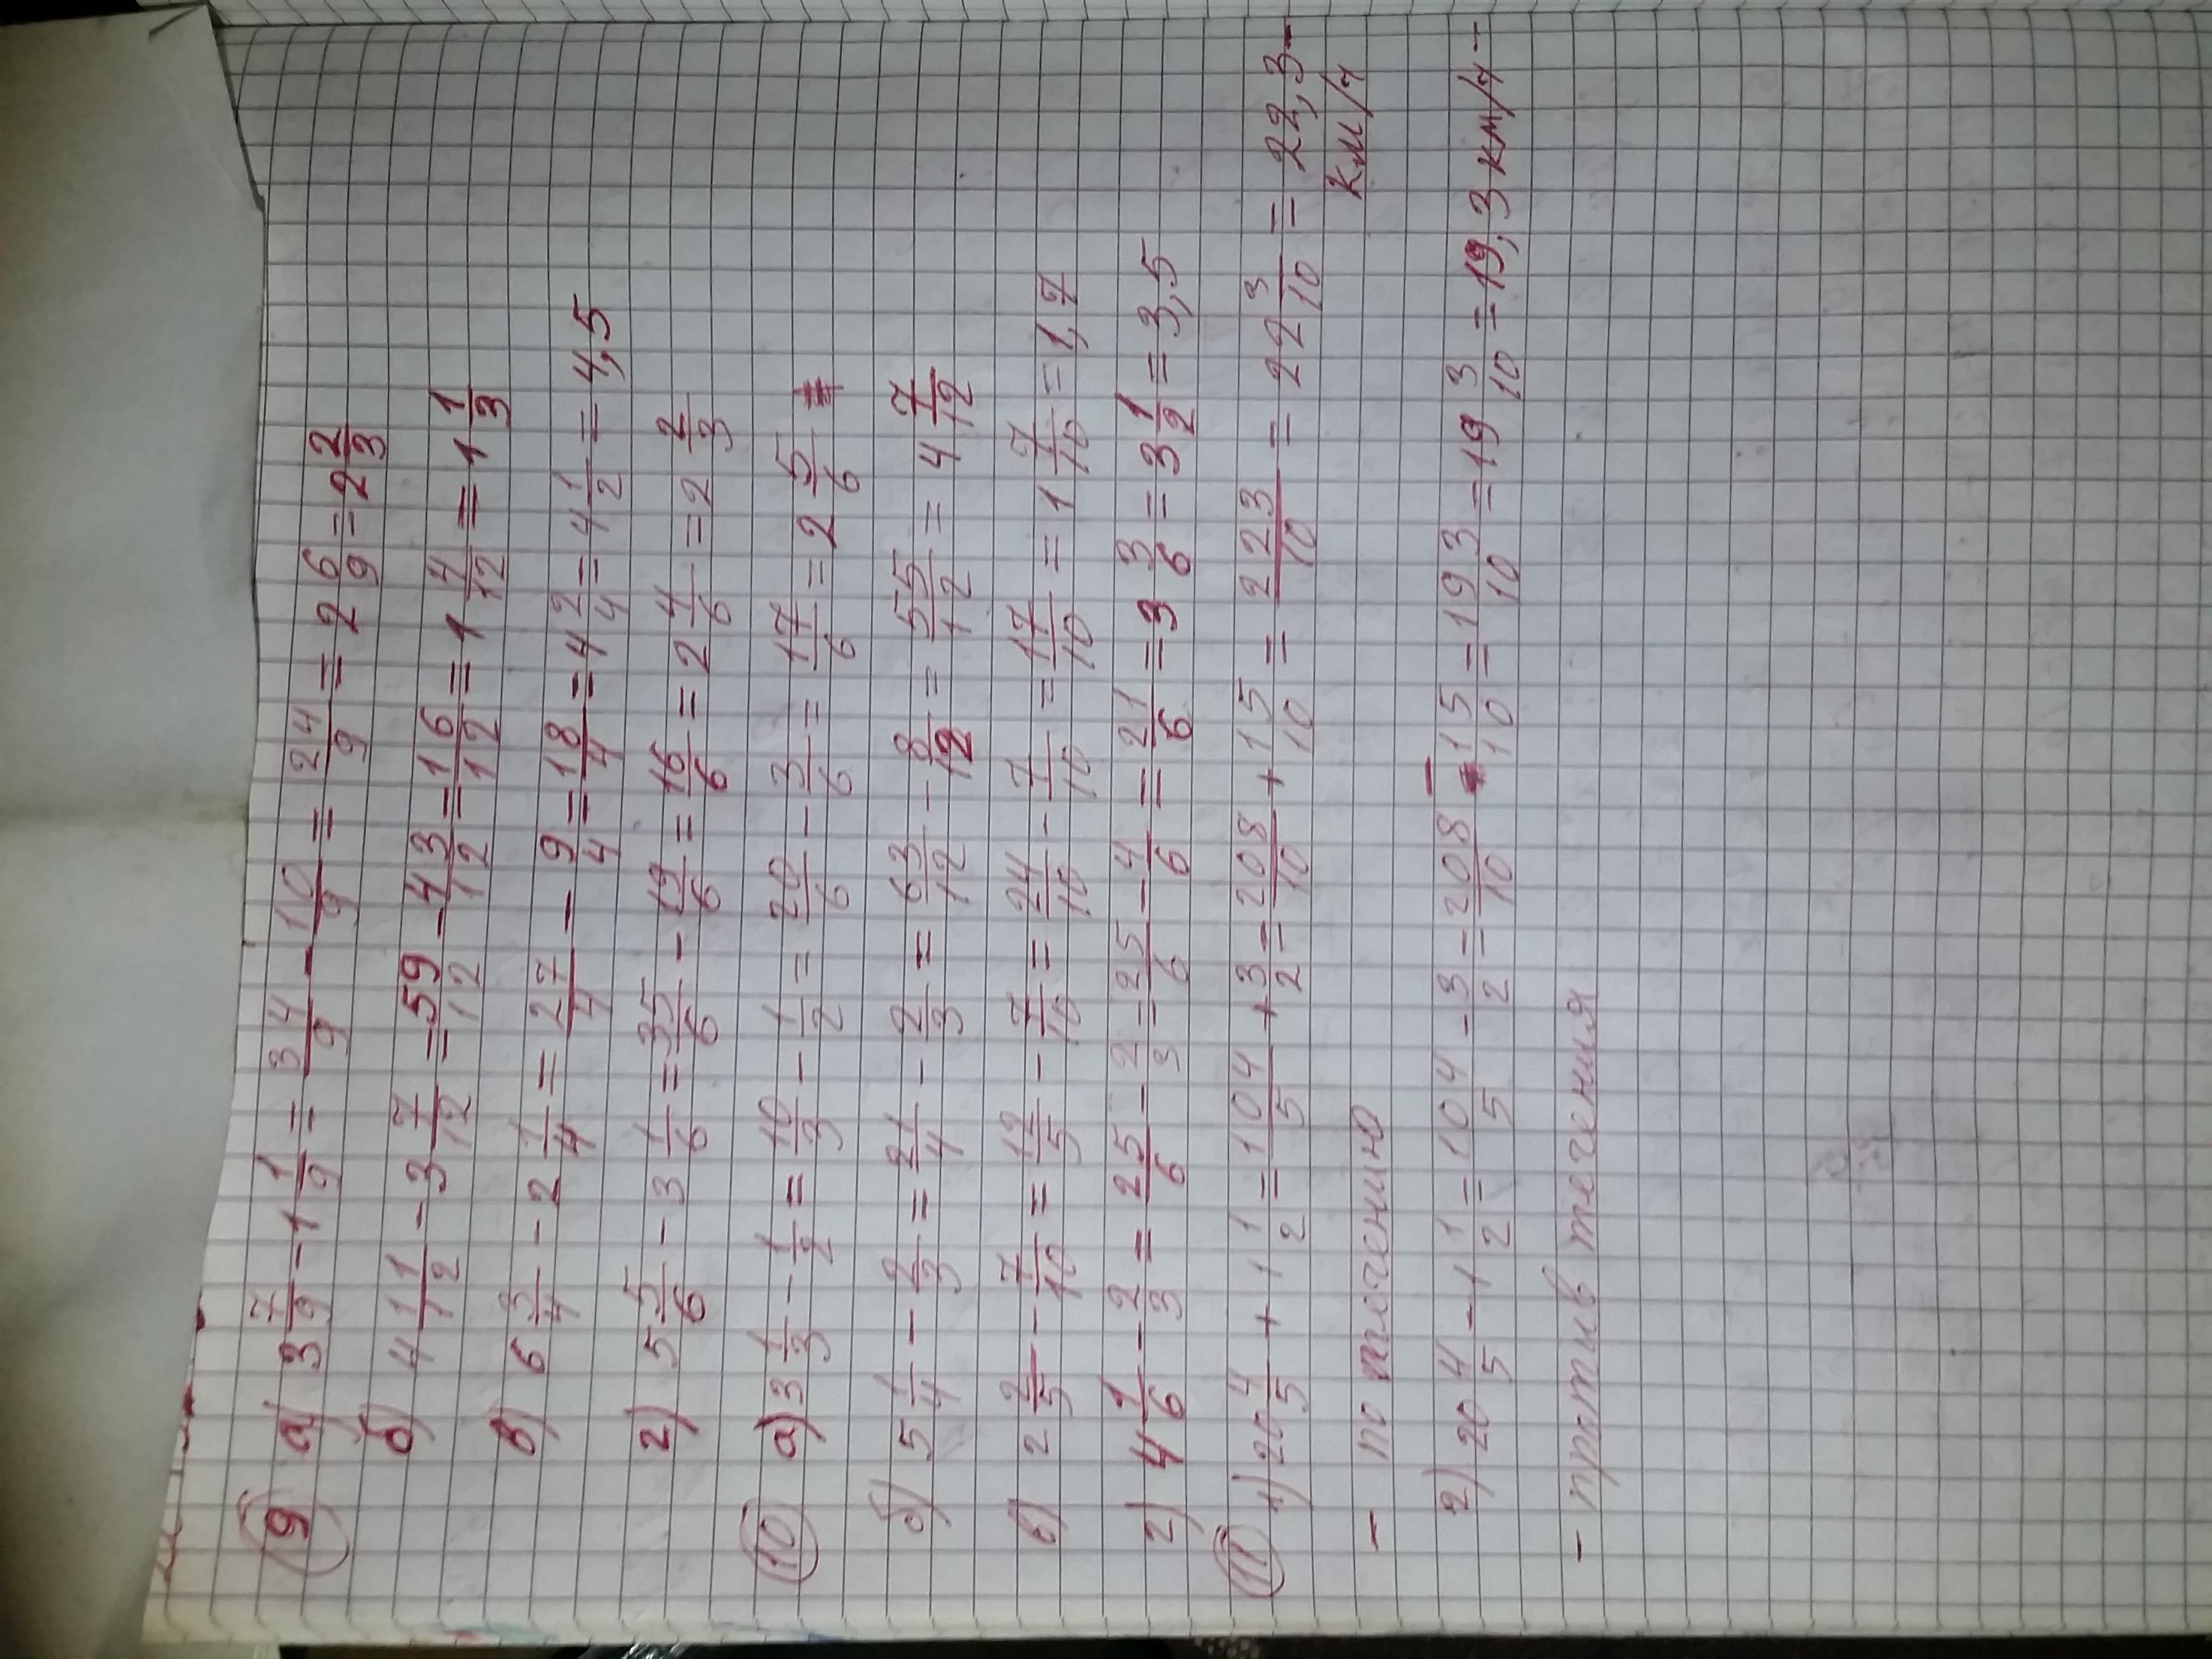 9 а) 3 7/9 - 1 1/9 = 34/9 - 10/9 = 24/9 = 2 6/9 = 2 2/3
б) 4 11/12 - 3 7/12 = 59/12 - 43/12 = 16/12 = 1 4/12 = 1 1/3
в) 6 3/4 - 2 1/4 = 27/4 - 9/4 = 18/4 = 4 2/4 = 4 1/2 = 4,5
г) 5 5/6 - 3 1/6 = 35/6 - 19/6 = 16/6 = 2 4/6 = 2 2/3
10 а) 3 1/3 - 1/2 = 10/3 - 1/2 = 20/6 - 3/6 = 17/6 = 2 5/6
б) 5 1/4 - 2/3 = 21/4 - 2/3 = 63/12 - 8/12 = 55/12 = 4 7/12
в) 2 2/5 - 7/10 = 12/5 - 7/10 = 24/10 - 7/10 = 17/10 = 1 7/10 = 1,7
г) 4 1/6 - 2/3 = 25/6 - 2/3 = 25/6 - 4/6 = 21/6 = 3 3/6 = 3 1/2 = 3,5
11 1) 20 4/5 + 1 1/2 = 104/5 + 3/2 = 208/10 + 15/10 = 223/10 = 22 3/10 = 22,3 -
км/ч
- по течению
2) 20 4/5 - 1 1/2 = 104/5 - 3/2 = 208/10 - 15/10 = 193/10 = 19 3/10 = 19,3 км/ч -
- против течения